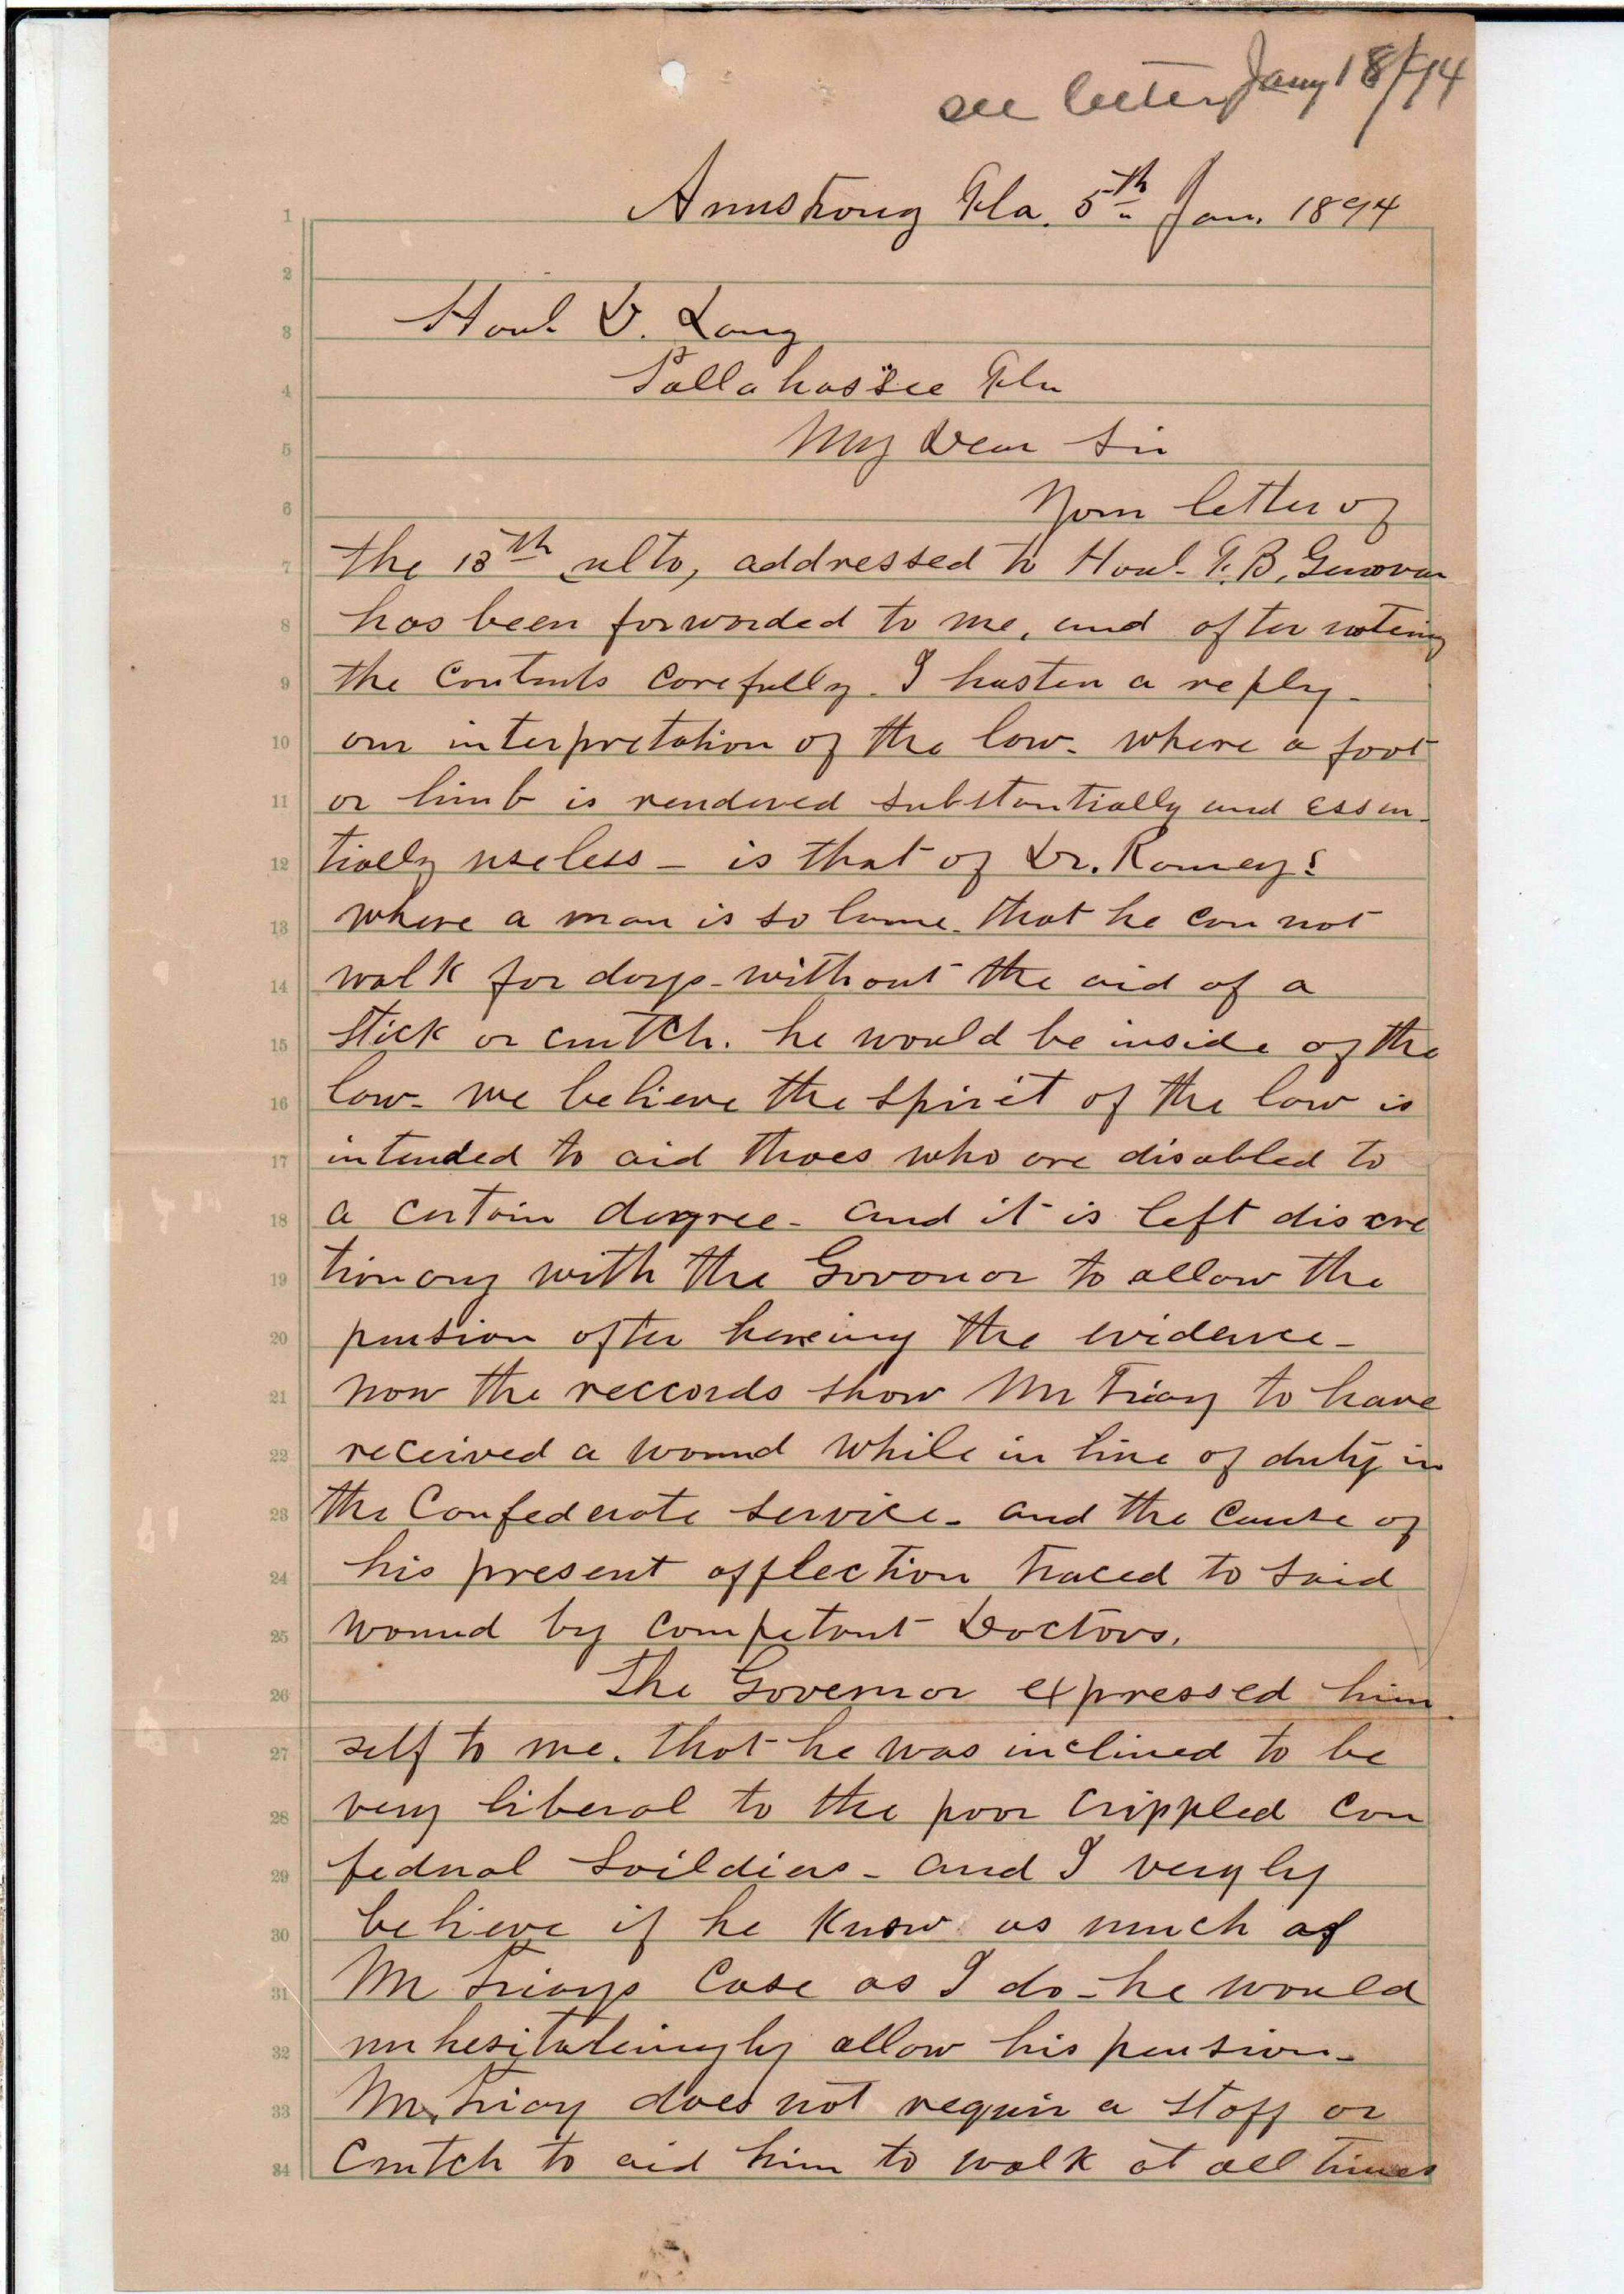 see letter Jany 18/94
Armstrong Fla. 5th Jan. 1894
1
2
3 Honl. D. Lang
4 Tallahassee Fla
5 My Dear Sir
6 Your letter of
7 the 13th ulto, addressed to Honl. F. B. Genovar
8 has been forwarded to me, and after noteing
9 the contents carefully. I hasten a reply.
10 our interpretation of the law. where a foot
11 or limb is rendered substantially and essen-
12 tially useless - is that of Dr. Rameys
13 where a man is so lame. that he can not
14 walk for days - without the aid of a
15 stick or crutch. he would be inside of the
16 law - we believe the spirit of the law is
17 intended to aid thoes who are disabled to
18 a certain degree - and it is left discre
19 tionary with the Govonor to allow the
20 pension after hearing the evidence -
21 now the reccords show Mr Triay to have
22 received a wound while in line of duty in
23 the Confederate service - and the cause of
24 his present afflection traced to said
25 wound by competant Doctors.
26 The Governor expressed him
27 self to me. that he was inclined to be
28 very liberal to the poor crippled con
29 fedral Soildiers - and I veryly
30 believe if he know as much of
31 Mr Triays case as I do - he would
32 unhesitateingly allow his pension -
33 Mr. Triay does not requir a staff or
34 crutch to aid him to walk at all times